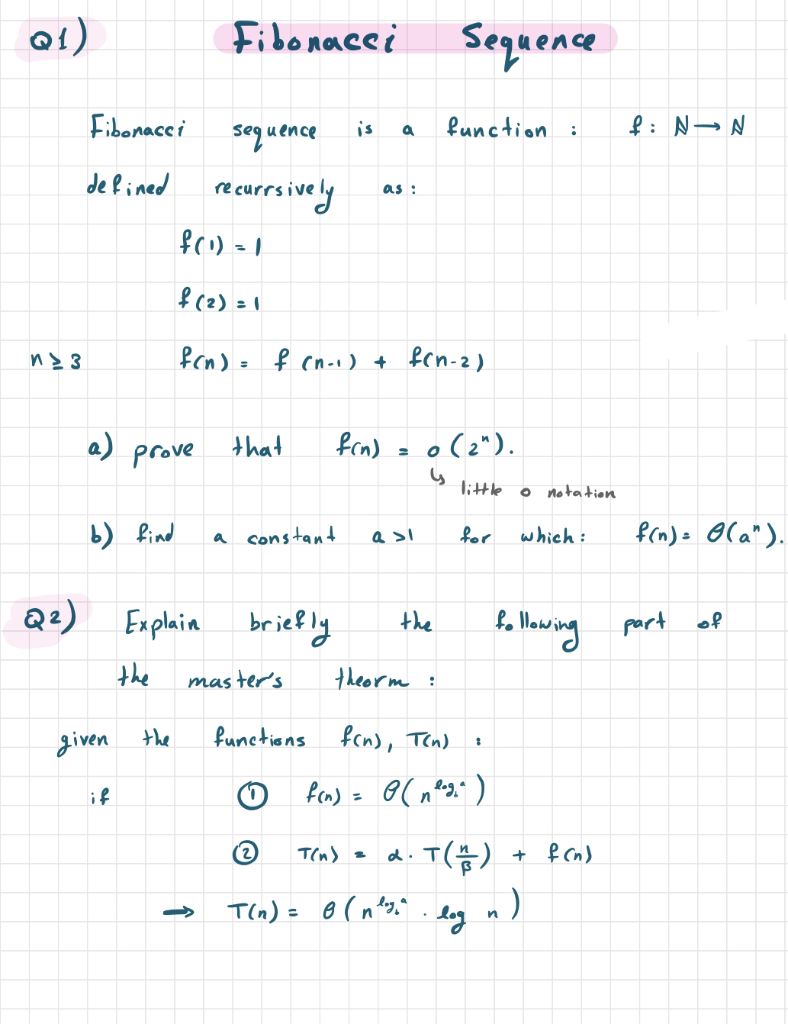 Q1) Fibonacci Sequence
Fibonacci sequence is a function : f : ℕ → ℕ
defined recurrsively as :
f(1) = 1
f(2) = 1
n ≥ 3 f(n) = f(n-1) + f(n-2)
a) prove that f(n) = o(2ⁿ).
↳ little o notation
b) find a constant a >1 for which : f(n) = θ(aⁿ).
Q2) Explain briefly the following part of
the master's theorm :
given the functions f(n), T(n) :
if ① f(n) = θ(n^(log_b a))
② T(n) = α · T(n/β) + f(n)
→ T(n) = θ(n^(log_b a) · log n)